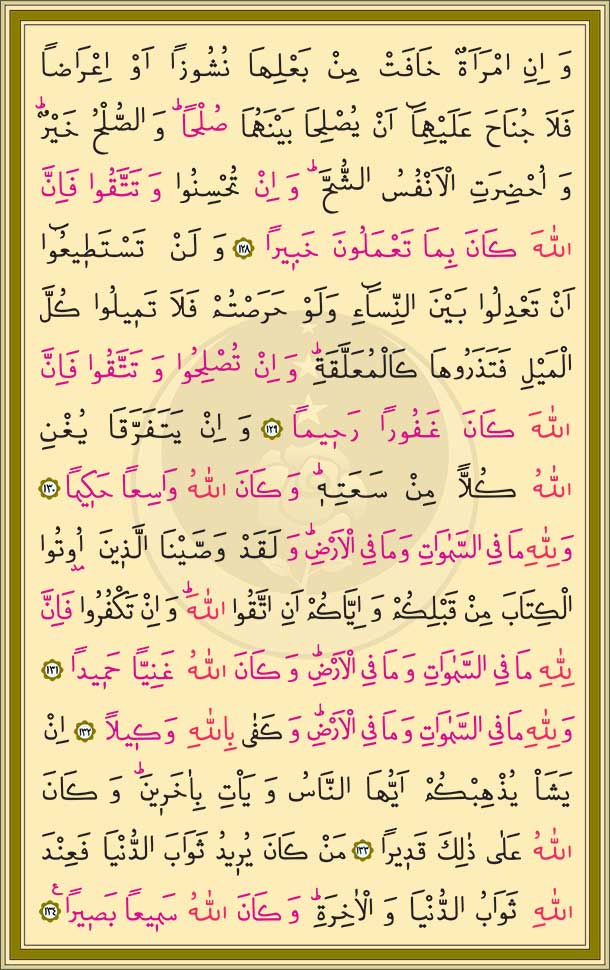 وَ اِنِ امْرَاَةٌ خَافَتْ مِنْ بَعْلِهَا نُشُوزًا اَوْ اِعْرَاضاً
فَلَا جُنَاحَ عَلَيْهِمَٓا اَنْ يُصْلِحَا بَيْنَهُمَا صُلْحًاۜ وَ الصُّلْحُ خَيْرٌۜ
وَ اُحْضِرَتِ الْاَنْفُسُ الشُّحَّۜ وَ اِنْ تُحْسِنُوا وَ تَتَّقُوا فَاِنَّ
اللّٰهَ كَانَ بِمَا تَعْمَلُونَ خَب۪يرًا ﴿١٢٨﴾ وَ لَنْ تَسْتَط۪يعُٓوا
اَنْ تَعْدِلُوا بَيْنَ النِّسَٓاءِ وَلَوْ حَرَصْتُمْ فَلَا تَم۪يلُوا كُلَّ
الْمَيْلِ فَتَذَرُوهَا كَالْمُعَلَّقَةِۜ وَ اِنْ تُصْلِحُوا وَ تَتَّقُوا فَاِنَّ
اللّٰهَ كَانَ غَفُورًا رَح۪يماً ﴿١٢٩﴾ وَ اِنْ يَتَفَرَّقَا يُغْنِ
اللّٰهُ كُلاًّ مِنْ سَعَتِه۪ۜ وَ كَانَ اللّٰهُ وَاسِعًا حَك۪يمًا ﴿١٣٠﴾
وَلِلّٰهِ مَا فِي السَّمٰوَاتِ وَمَا فِي الْاَرْضِۜ وَ لَقَدْ وَصَّيْنَا الَّذ۪ينَ اُو۫تُوا
الْكِتَابَ مِنْ قَبْلِكُمْ وَ اِيَّاكُمْ اَنِ اتَّقُوا اللّٰهَۜ وَ اِنْ تَكْفُرُوا فَاِنَّ
لِلّٰهِ مَا فِي السَّمٰوَاتِ وَ مَا فِي الْاَرْضِۜ وَ كَانَ اللّٰهُ غَنِيًّا حَم۪يداً ﴿١٣١﴾
وَلِلّٰهِ مَا فِي السَّمٰوَاتِ وَ مَا فِي الْاَرْضِۜ وَ كَفٰى بِاللّٰهِ وَك۪يلاً ﴿١٣٢﴾ اِنْ
يَشَاْ يُذْهِبْكُمْ اَيُّهَا النَّاسُ وَ يَاْتِ بِاٰخَر۪ينَۜ وَ كَانَ
اللّٰهُ عَلٰى ذٰلِكَ قَد۪يرًا ﴿١٣٣﴾ مَنْ كَانَ يُر۪يدُ ثَوَابَ الدُّنْيَا فَعِنْدَ
اللّٰهِ ثَوَابُ الدُّنْيَا وَ الْاٰخِرَةِۜ وَ كَانَ اللّٰهُ سَم۪يعاً بَص۪يرًا۟ ﴿١٣٤﴾ ع